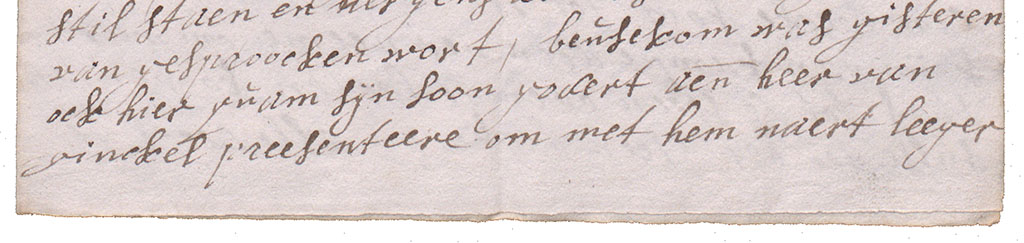 stil staen en nergens
van gesproocken wort, beusekom was gisteren
ock hier quam sijn soon godert aen heer van
ginckel preesenteere om met hem naert leeger